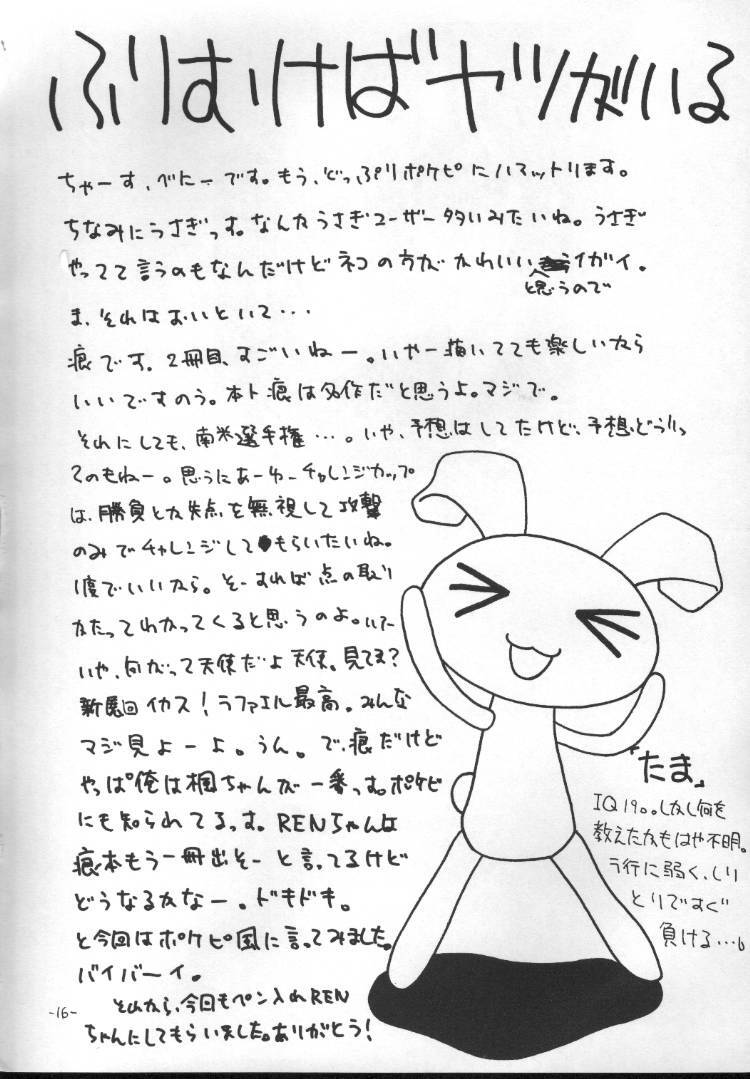 ふりむけばヤツがいる
ちゃーす、べにーです。もう、どっぷりポケピにハマットります。
ちなみにうさぎっす。なんかうさぎユーザー多いみたいね。うさぎ
やってて言うのもなんだけどネコの方がかわいいと思うのでイガイ。
ま、それはおいといて・・・
痕です。2冊目、すごいねー。いやー描いてても楽しいから
いいですのう。本ト痕は名作だと思うよ。マジで。
それにしても、南米選手権・・・。いや、予想はしてたけど、予想どうりっ
てのもねー。思うにあーゆーチャレンジカップ
は、勝負とか失点を無視して攻撃
のみでチャレンジしてもらいたいね。
1度でいいから。そーすれば点の取り
かたってわかってくると思うのよ。いてー
いや、何がって天使だよ天使。見てる?
新魔回イカス!ラファエル最高。みんな
マジ見よーよ。うん。で、痕だけど
やっぱ俺は楓ちゃんが一番っす。ポケピ
にも知られてるっす。RENちゃんは
痕本もう一冊出そーと言ってるけど
どうなるかなー。ドキドキ。
と今回はポケピ風に言ってみました。
バイバーイ。
それから、今回もペン入れREN
ちゃんにしてもらいました。ありがとう!
「たま」
IQ190。しかし何を
教えたかもはや不明。
ラ行に弱く、しり
とりですぐ
負ける…。
-16-